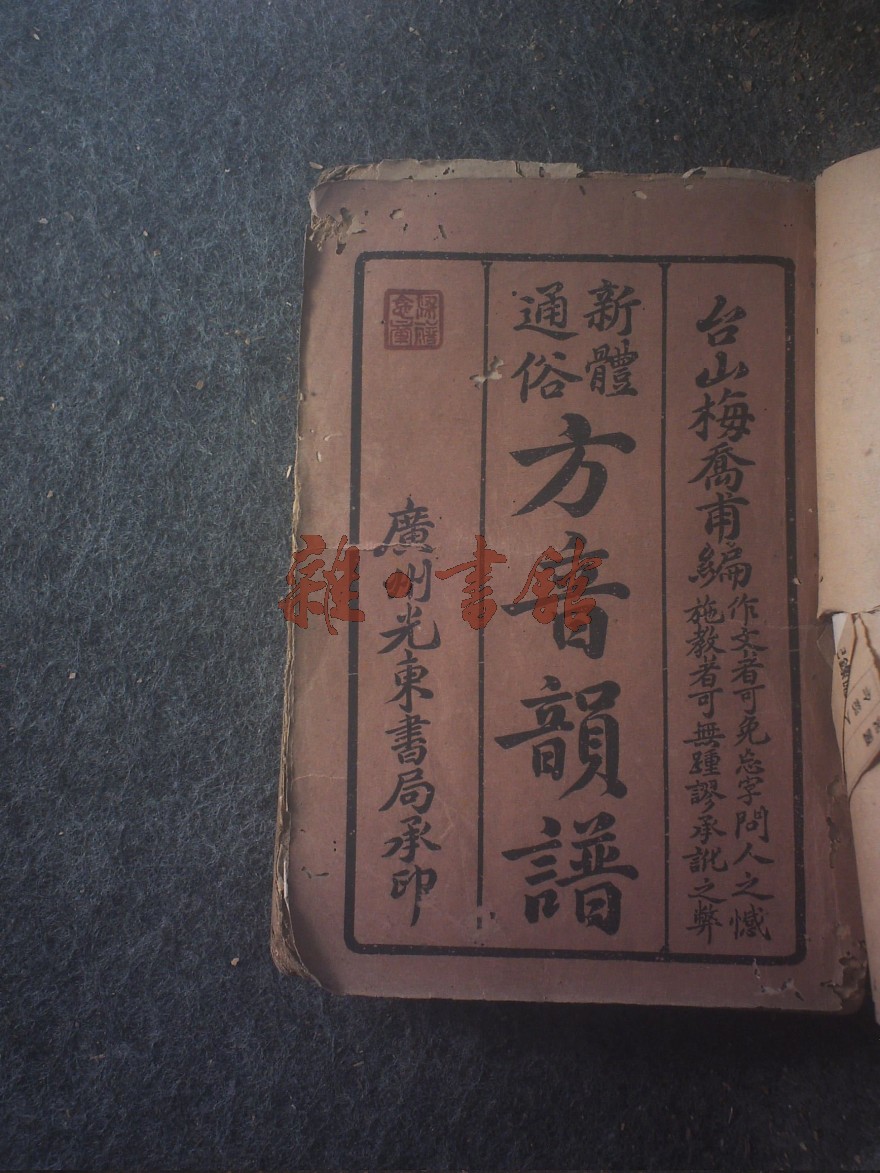 台山梅喬甫編
作文者可免忘字問人之憾
施教者可無踵謬承訛之弊
新體
通俗
方音韻譜
廣州光東書局承印
雜·書館